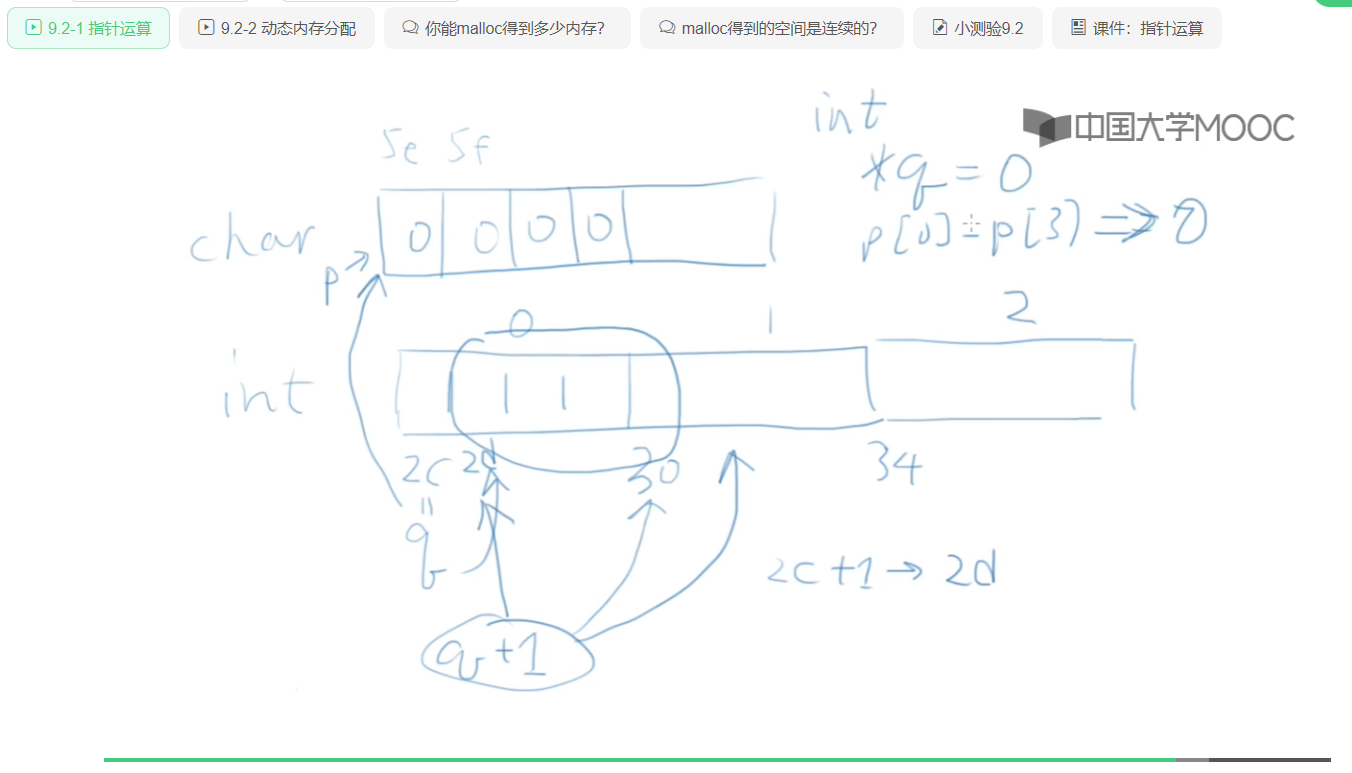 9.2-1 指针运算
9.2-2 动态内存分配
你能malloc得到多少内存?
malloc得到的空间是连续的?
小测验9.2
课件：指针运算
中国大学MOOC
int
5e 5f
*q = 0
char 0 0 0 0
p[0] = p[3) ⇒ 0
p
0 1 2
int
2c 2d 30 34
q
2c+1 → 2d
q+1